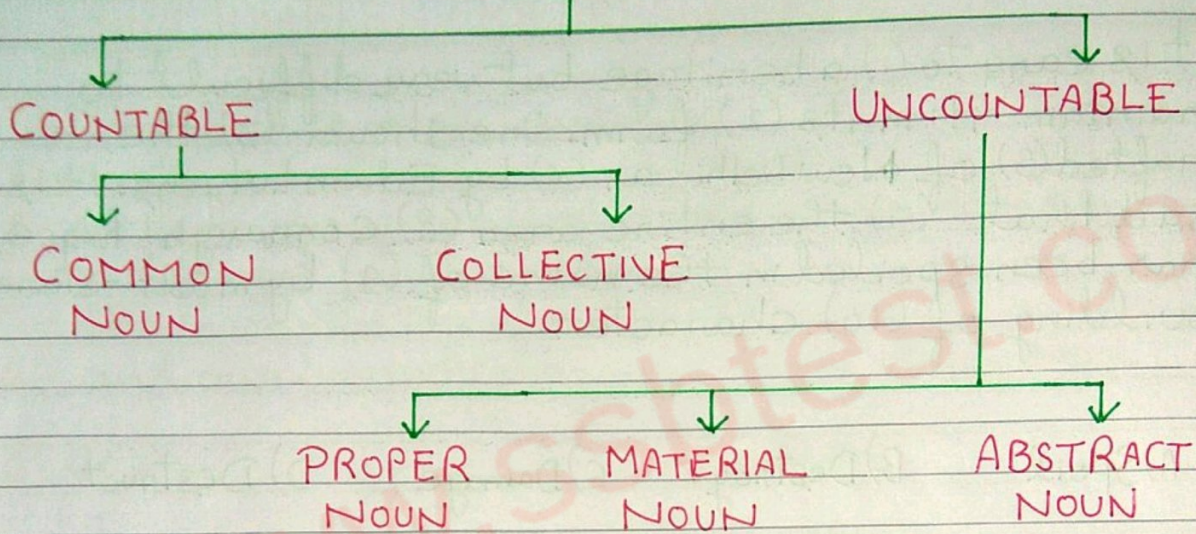 COUNTABLE
UNCOUNTABLE
COMMON
NOUN
COLLECTIVE
NOUN
PROPER
NOUN
MATERIAL
NOUN
ABSTRACT
NOUN
.ssbtest.co